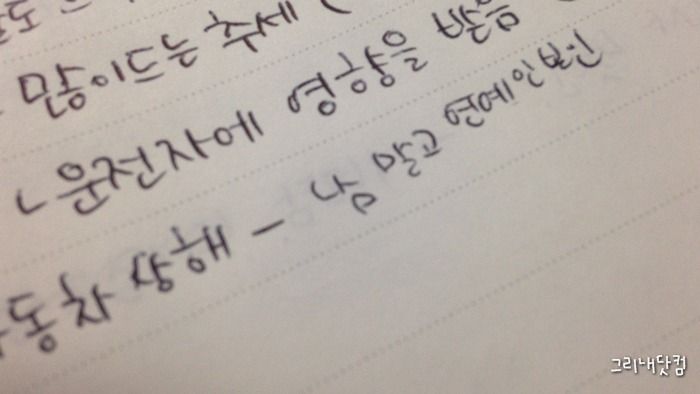 많이드는 추세 (
운전자에 영향을 받음
동차 상해 - 남 말고 연예인보면
그리내닷컴